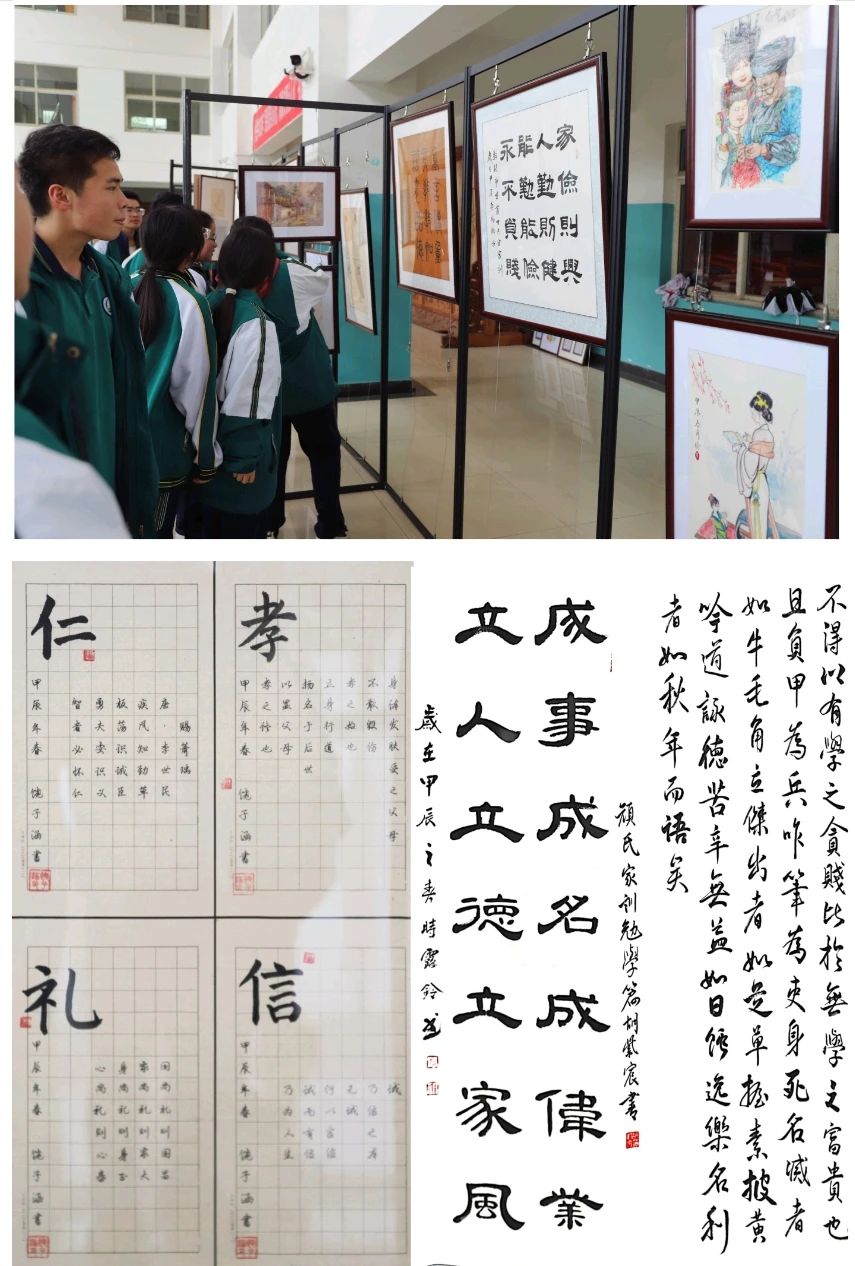 家儉則興
人勤則健
能勤能儉
永不貧賤
仁
賜萧瑀
唐·李世民
疾风知劲草
板荡识诚臣
勇夫安识义
智者必怀仁
甲辰年春 饶子涵書
孝
身体发肤受之父母
不敢毁伤
孝之始也
立身行道
扬名于后世
以显父母
孝之终也
甲辰年春 饶子涵書
礼
国尚礼则国昌
家尚礼则家大
身尚礼则身正
心尚礼则心泰
甲辰年春 饶子涵書
信
诚
乃信之本
无诚
何以言信
诚而有信
乃为人生
甲辰年春 饶子涵書
成事成名成偉業
立人立德立家風
歲在甲辰之春時露鈴书
不得以有學之貪賤比於無學之富貴也
且負甲為兵咋筆為吏身死名滅者
如牛毛角立傑出者如芝草握素披黄
吟道詠德苦辛無益如日蝕逸樂名利
者如秋年而語矣
顏氏家訓勉學篇胡紫宸書